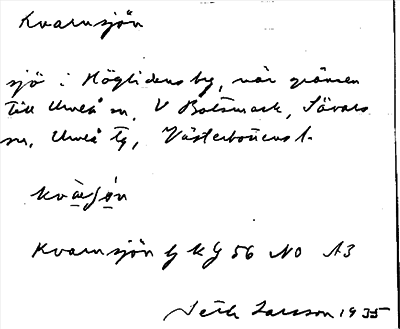 Kvarnsjön
sjö i Höglidens by, när gränsen
till Umeå sn, V Botsmark, Sävars
sn, Umeå tg, Västerbottens l.
kvàrʃó̱n
Kvarnsjön GK G 56 NO A3
Seth Larsson 1935